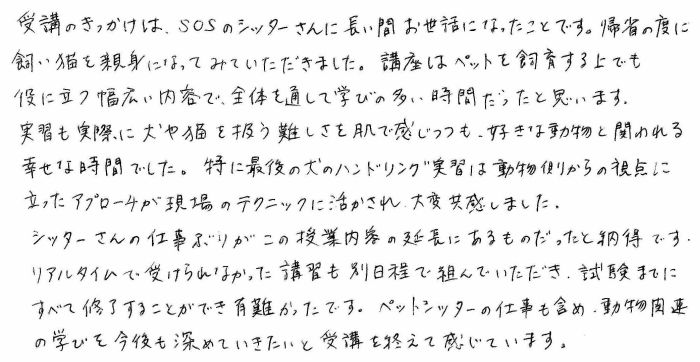 受講のきっかけは、SOSのシッターさんに長い間お世話になったことです。帰省の度に
飼い猫を親身になってみていただきました。講座はペットを飼育する上でも
役に立つ幅広い内容で、全体を通して学びの多い時間だったと思います。
実習も実際に犬や猫を扱う難しさを肌で感じつつも、好きな動物と関われる
幸せな時間でした。特に最後の犬のハンドリング実習は動物側からの視点に
立ったアプローチが現場のテクニックに活かされ、大変共感しました。
シッターさんの仕事ぶりがこの授業内容の延長にあるものだったと納得です。
リアルタイムで受けられなかった講習も別日程で組んでいただき、試験までに
すべて修了することができ有難かったです。ペットシッターの仕事も含め、動物関連
の学びを今後も深めていきたいと受講を終えて感じています。